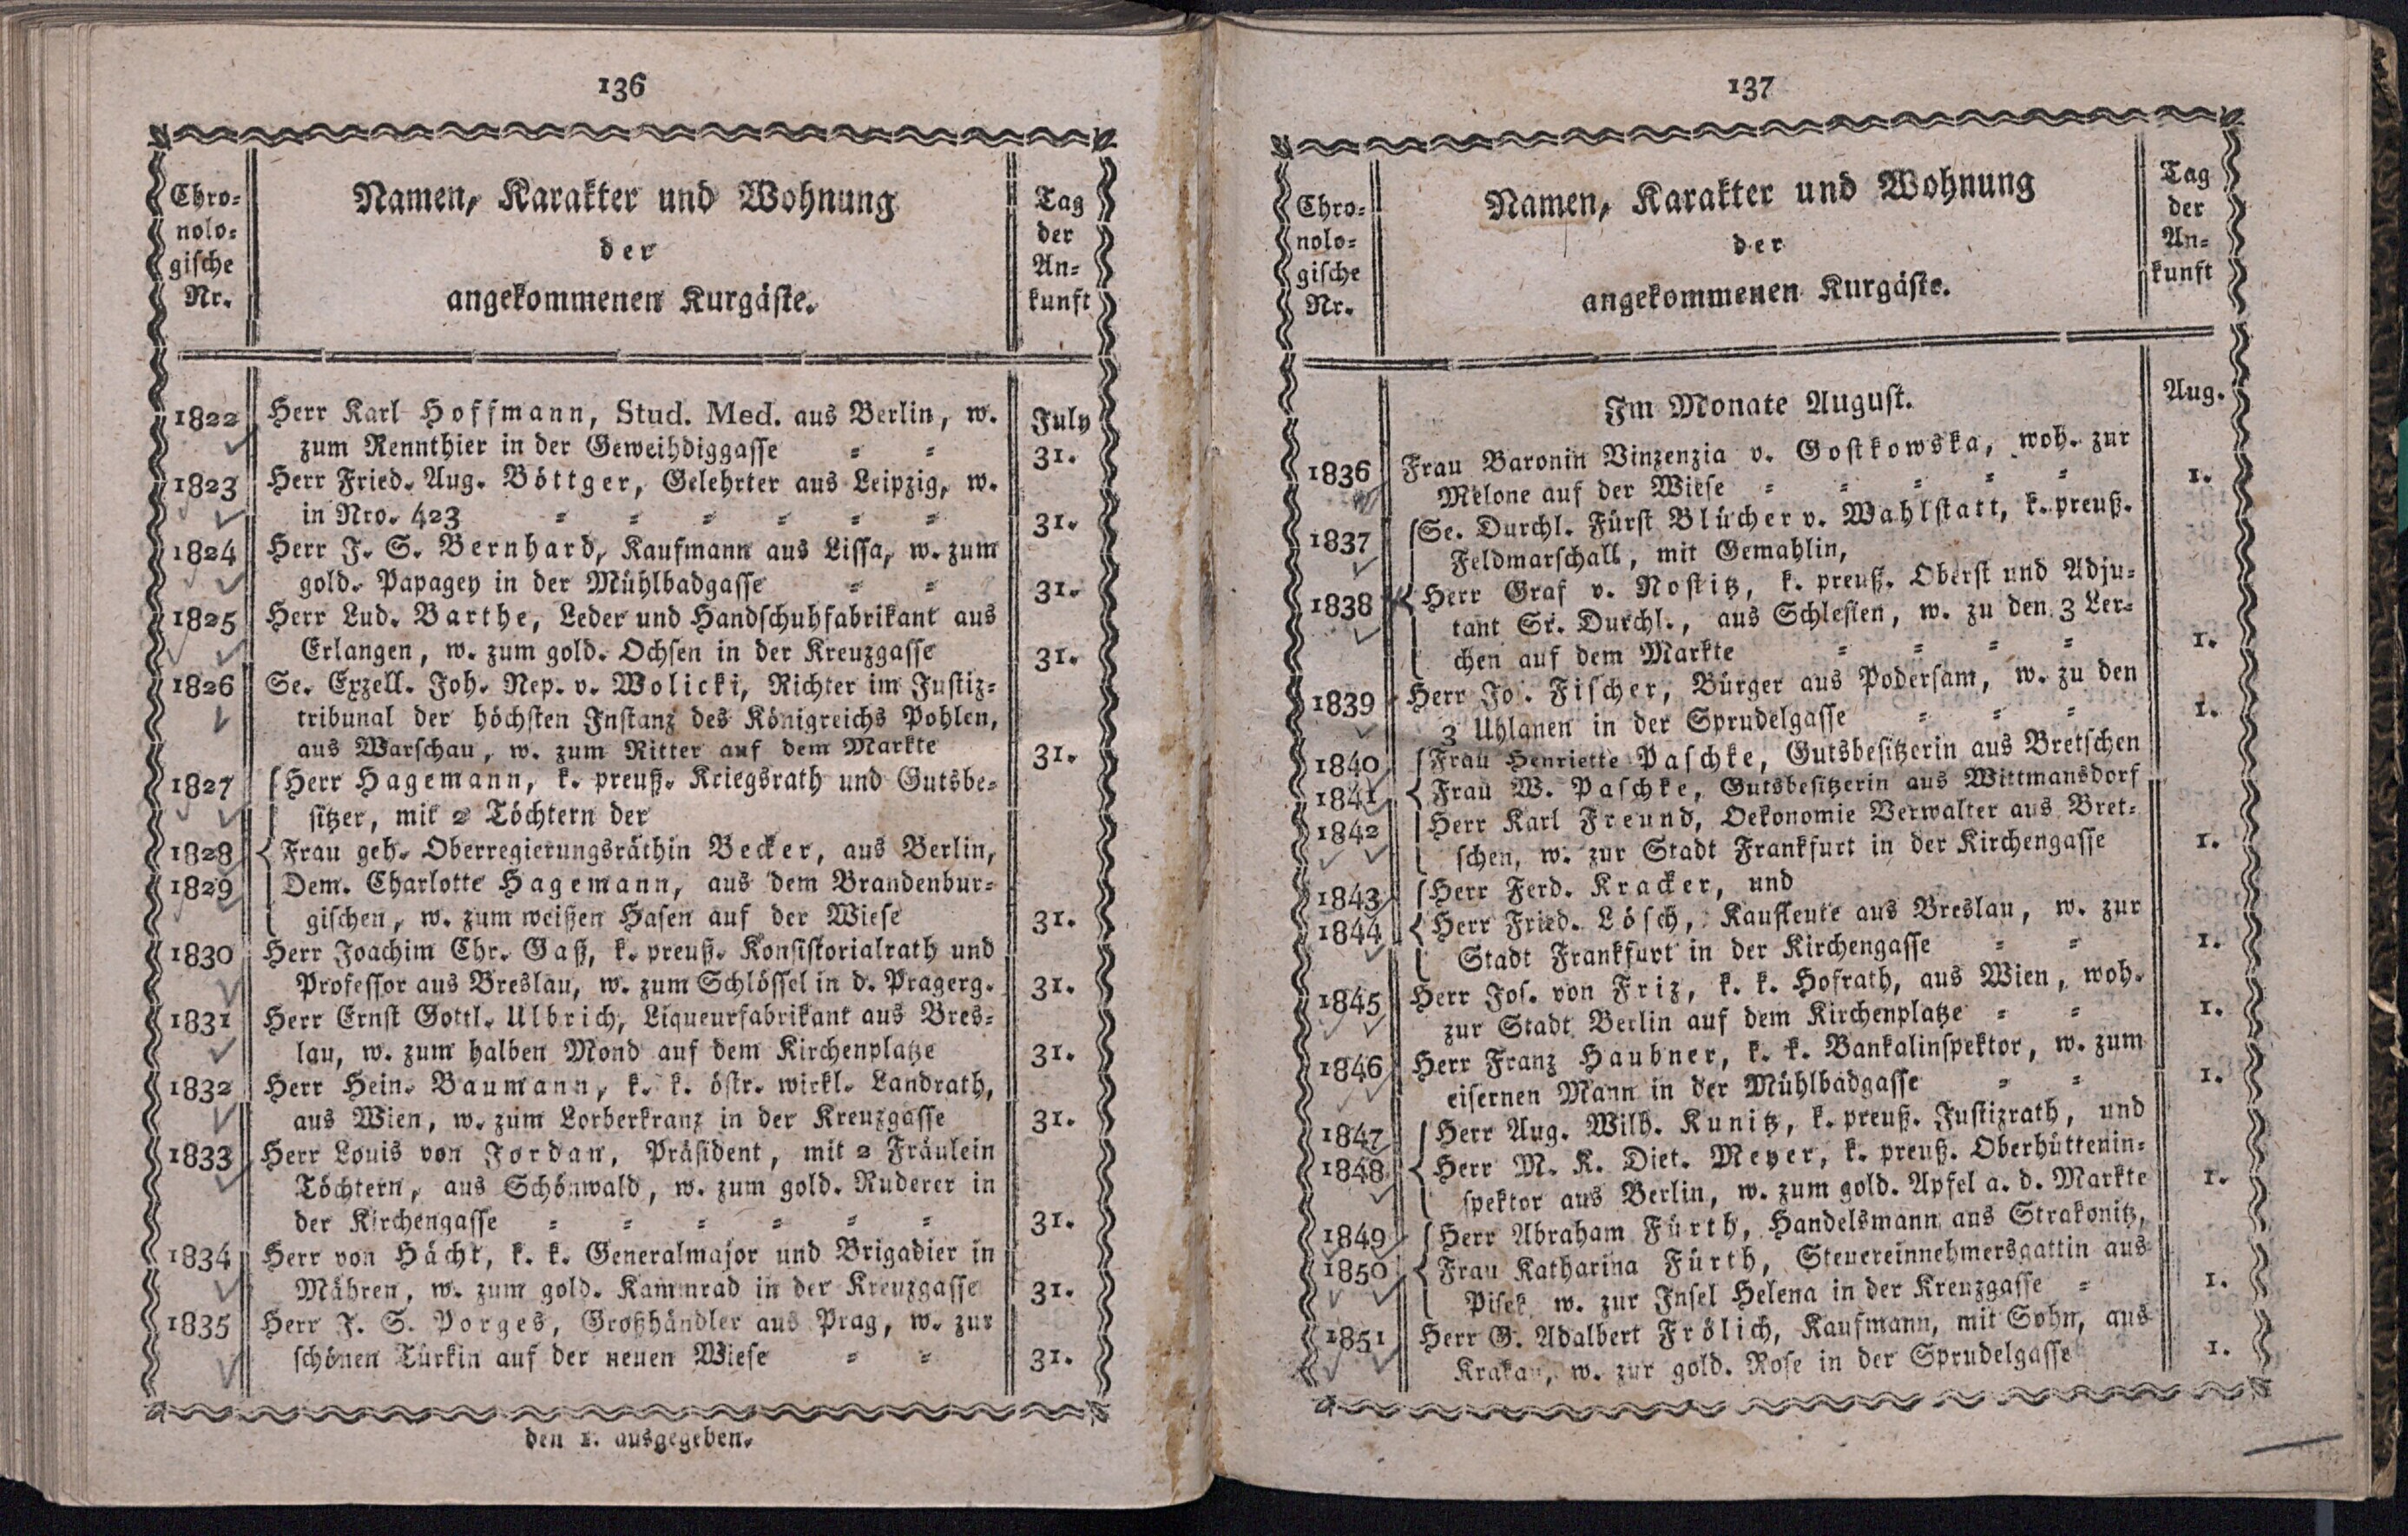 136
Chro-
nolo-
gische
Nr.
Namen, Karakter und Wohnung
der
angekommenen Kurgäste.
Tag
der
An-
kunft
1822 Herr Karl Hoffmann, Stud. Med. aus Berlin, w. July
zum Rennthier in der Geweihdiggasse = = 31.
1823 Herr Fried. Aug. Böttger, Gelehrter aus Leipzig, w.
in Nro. 423 = = = = = = 31.
1824 Herr J. S. Bernhard, Kaufmann aus Lissa, w. zum
gold. Papagey in der Mühlbadgasse = = 31.
1825 Herr Lud. Barthe, Leder und Handschuhfabrikant aus
Erlangen, w. zum gold. Ochsen in der Kreuzgasse 31.
1826 Se. Exzell. Joh. Nep. v. Wolicki, Richter im Justiz-
tribunal der höchsten Instanz des Königreichs Pohlen,
aus Warschau, w. zum Ritter auf dem Markte 31.
1827 Herr Hagemann, k. preuß. Kriegsrath und Gutsbe-
sitzer, mit 2 Töchtern der
1828 Frau geh. Oberregierungsräthin Becker, aus Berlin,
1829 Dem. Charlotte Hagemann, aus dem Brandenbur-
gischen, w. zum weißen Hasen auf der Wiese 31.
1830 Herr Joachim Chr. Gaß, k. preuß. Konsistorialrath und
Professor aus Breslau, w. zum Schlössel in d. Pragerg. 31.
1831 Herr Ernst Gottl. Ulbrich, Liqueurfabrikant aus Bres-
lau, w. zum halben Mond auf dem Kirchenplatze 31.
1832 Herr Hein. Baumann, k. k. östr. wirkl. Landrath,
aus Wien, w. zum Lorberkranz in der Kreuzgasse 31.
1833 Herr Louis von Jordan, Präsident, mit 2 Fräulein
Töchtern, aus Schönwald, w. zum gold. Ruderer in
der Kirchengasse = = = = = = 31.
1834 Herr von Hächt, k. k. Generalmajor und Brigadier in
Mähren, w. zum gold. Kammrad in der Kreuzgasse 31.
1835 Herr J. S. Porges, Großhändler aus Prag, w. zur
schönen Türkin auf der neuen Wiese = = 31.
den 1. ausgegeben.
137
Chro-
nolo-
gische
Nr.
Namen, Karakter und Wohnung
der
angekommenen Kurgäste.
Tag
der
An-
kunft
Im Monate August. Aug.
1836 Frau Baronin Vinzenzia v. Gostkowska, woh. zur
Melone auf der Wiese = = = = = 1.
1837 Se. Durchl. Fürst Blücher v. Wahlstatt, k. preuß.
Feldmarschall, mit Gemahlin,
1838 Herr Graf v. Nostitz, k. preuß. Oberst und Adju-
tant Sr. Durchl., aus Schlesien, w. zu den 3 Ler-
chen auf dem Markte = = = = 1.
1839 Herr Jo. Fischer, Bürger aus Podersam, w. zu den
3 Uhlanen in der Sprudelgasse = = = 1.
1840 Frau Henriette Paschke, Gutsbesitzerin aus Bretschen
1841 Frau W. Paschke, Gutsbesitzerin aus Wittmansdorf
1842 Herr Karl Freund, Oekonomie Verwalter aus Bret-
schen, w. zur Stadt Frankfurt in der Kirchengasse 1.
1843 Herr Ferd. Kracker, und
1844 Herr Fried. Lösch, Kaufleute aus Breslau, w. zur
Stadt Frankfurt in der Kirchengasse = = 1.
1845 Herr Jos. von Friz, k. k. Hofrath, aus Wien, woh.
zur Stadt Berlin auf dem Kirchenplatze = = 1.
1846 Herr Franz Haubner, k. k. Bankalinspektor, w. zum
eisernen Mann in der Mühlbadgasse = = 1.
1847 Herr Aug. Wilh. Kunitz, k. preuß. Justizrath, und
1848 Herr M. K. Diet. Meyer, k. preuß. Oberhüttenin-
spektor aus Berlin, w. zum gold. Apfel a. d. Markte 1.
1849 Herr Abraham Fürth, Handelsmann aus Strakonitz,
1850 Frau Katharina Fürth, Steuereinnehmersgattin aus
Pisek, w. zur Insel Helena in der Kreuzgasse = 1.
1851 Herr G. Adalbert Frölich, Kaufmann, mit Sohn, aus
Krakau, w. zur gold. Rose in der Sprudelgasse 1.